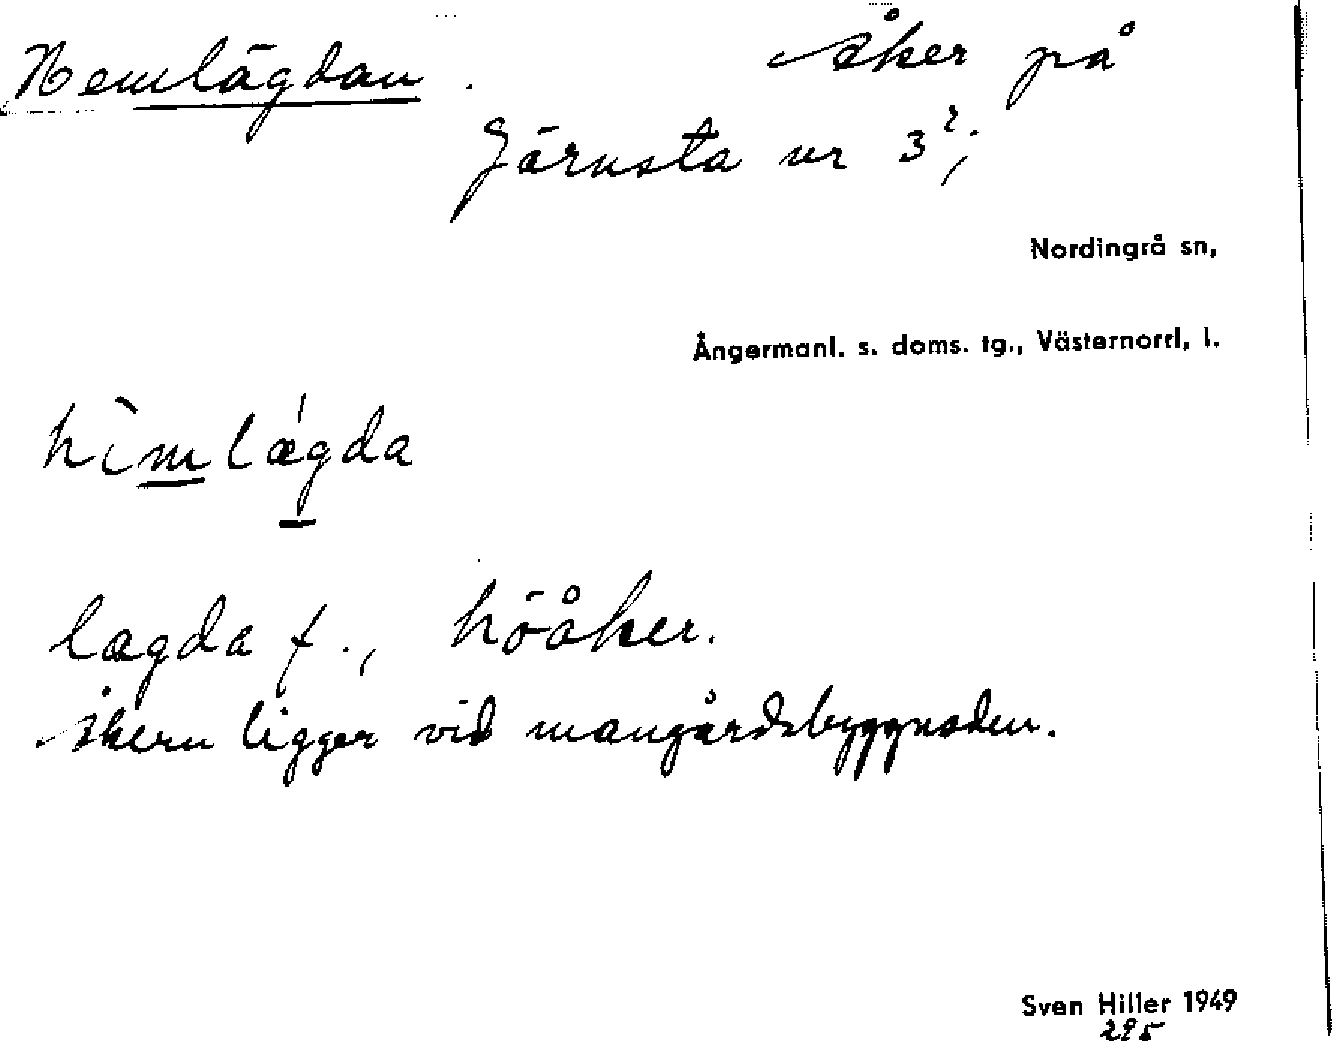 Hemlägdan. åker på
Järnsta nr 3²;
Nordingrå sn,
Ångermanl. s. doms. tg., Västernorrl. l.
hìmlǽgda
lægda f., höåker.
åkern ligger vid mangårdsbyggnaden.
Sven Hiller 1949
295